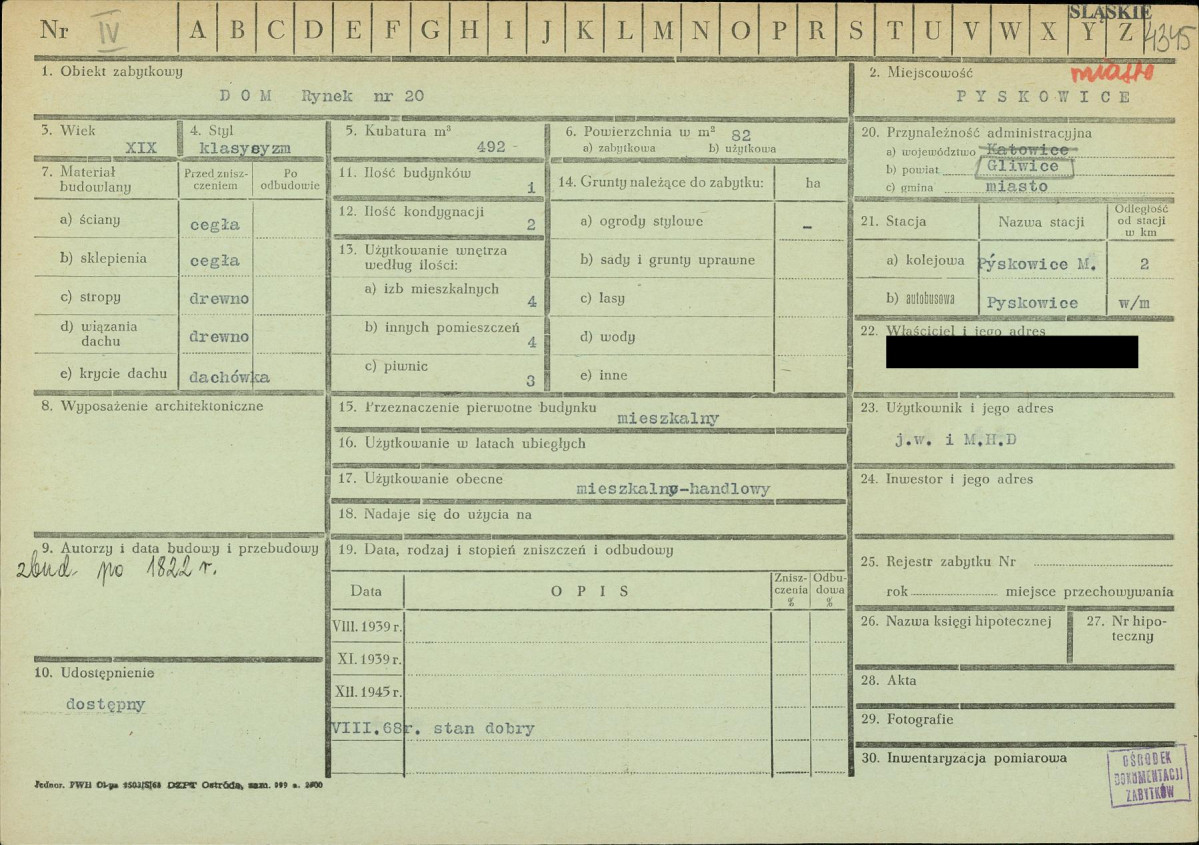 Nr IV A B C D E F G H I J K L M N O P R S T U V W X Y Z
ŚLĄSKIE
4345
1. Obiekt zabytkowy
D O M Rynek nr 20
2. Miejscowość
miasto
P Y S K O W I C E
3. Wiek
XIX
4. Styl
klasycyzm
5. Kubatura m³
492 -
6. Powierzchnia w m² 82
a) zabytkowa b) użytkowa
7. Materiał budowlany
Przed zniszczeniem
Po odbudowie
a) ściany cegła
b) sklepienia cegła
c) stropy drewno
d) wiązania dachu drewno
e) krycie dachu dachówka
8. Wyposażenie architektoniczne
9. Autorzy i data budowy i przebudowy
zbud. po 1822 r.
10. Udostępnienie
dostępny
Jednor. PWH
DZPT Ostróda, zam.
11. Ilość budynków
1
12. Ilość kondygnacji
2
13. Użytkowanie wnętrza
według ilości:
a) izb mieszkalnych
4
b) innych pomieszczeń
4
c) piwnic
3
14. Grunty należące do zabytku: ha
a) ogrody stylowe -
b) sady i grunty uprawne
c) lasy
d) wody
e) inne
15. Przeznaczenie pierwotne budynku
mieszkalny
16. Użytkowanie w latach ubiegłych
17. Użytkowanie obecne
mieszkalno-handlowy
18. Nadaje się do użycia na
19. Data, rodzaj i stopień zniszczeń i odbudowy
Data
O P I S
Zniszczenia %
Odbudowa %
VIII. 1939 r.
XI. 1939 r.
XII. 1945 r.
VIII.68r. stan dobry
20. Przynależność administracyjna
a) województwo Katowice
b) powiat Gliwice
c) gmina miasto
21. Stacja
Nazwa stacji
Odległość od stacji w km
a) kolejowa Pyskowice M. 2
b) autobusowa Pyskowice w/m
22. Właściciel i jego adres
23. Użytkownik i jego adres
j.w. i M.H.D
24. Inwestor i jego adres
25. Rejestr zabytku Nr
rok miejsce przechowywania
26. Nazwa księgi hipotecznej
27. Nr hipoteczny
28. Akta
29. Fotografie
30. Inwentaryzacja pomiarowa
OŚRODEK
DOKUMENTACJI
ZABYTKÓW